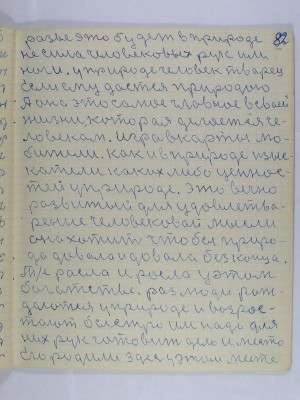 разве это будет в природе
82
не сила человековых рук или
ноги. у природе человек творец
если ему дается природою
А она это самое главное в своей
жизни, которая делается че-
ловекам. Игра в карты мо-
билели. как и в природе изые-
катели каких либо ценнос-
тей у природе. Это вечно
развитый для удовлетва-
рение человековай мысли
она хотит чтобы приро-
да довала и довала без конца.
Т/е росла и росла у этом
богатстве. раз люди рож-
даются у природе и возрос-
тают быстро им надо для
них рук готовит дело и место
Его родили здес у этом месте